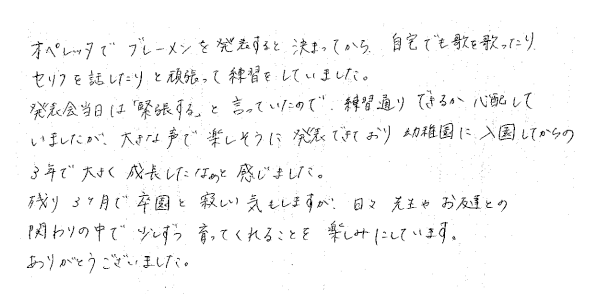 オペレッタで ブレーメンを発表すると 決まってから 自宅でも歌を歌ったり
セリフを話したりと頑張って練習をしていました。
発表会当日は「緊張する」と言っていたので、練習通りできるか心配して
いましたが、大きな声で楽しそうに発表できており 幼稚園に入園してからの
3年で大きく成長したなぁと感じました。
残り3ヶ月で卒園と寂しい気もしますが、日々 先生やお友達との
関わりの中で少しずつ育ってくれることを楽しみにしています。
ありがとうございました。